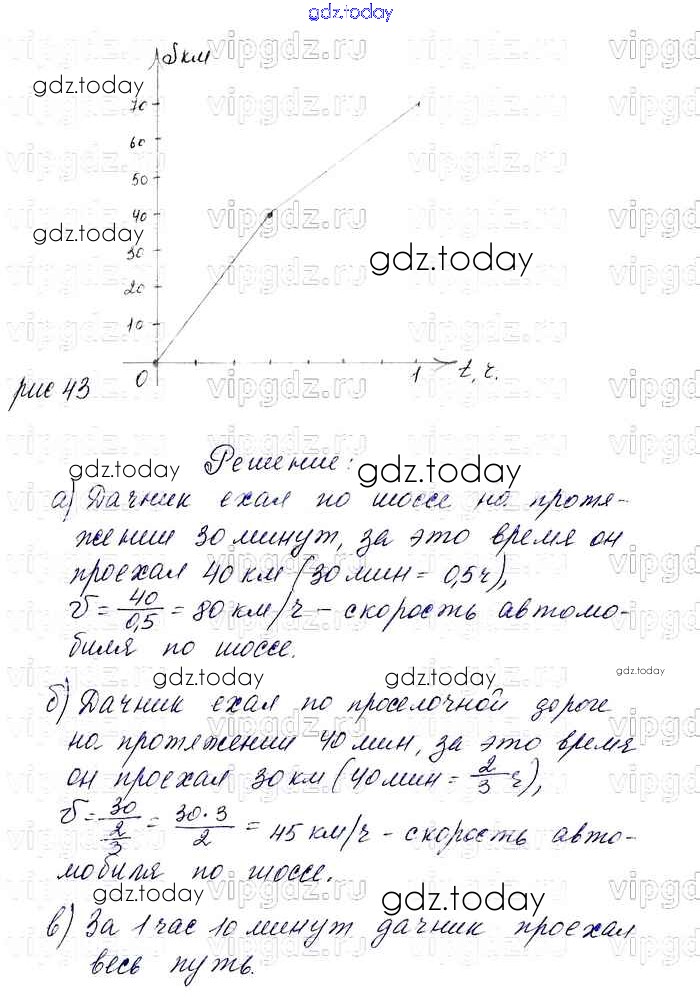 gdz.today
S км
gdz.today
70
60
50
40
gdz.today
30
gdz.today
20
10
0
1
t, ч.
рис 43
Решение:
gdz.today
gdz.today
а) Дачник ехал по шоссе на протя-
жении 30 минут, за это время он
проехал 40 км (30 мин = 0,5 ч),
V = 40/0,5 = 80 км/ч - скорость автомо-
биля по шоссе.
gdz.today
gdz.today
gdz.today
б) Дачник ехал по проселочной дороге
на протяжении 40 мин, за это время
он проехал 30 км (40 мин = 2/3 ч),
V = 30/(2/3) = 30·3/2 = 45 км/ч - скорость авто-
мобиля по шоссе.
gdz.today
gdz.today
в) За 1 час 10 минут дачник проехал
весь путь.
vipgdz.ru